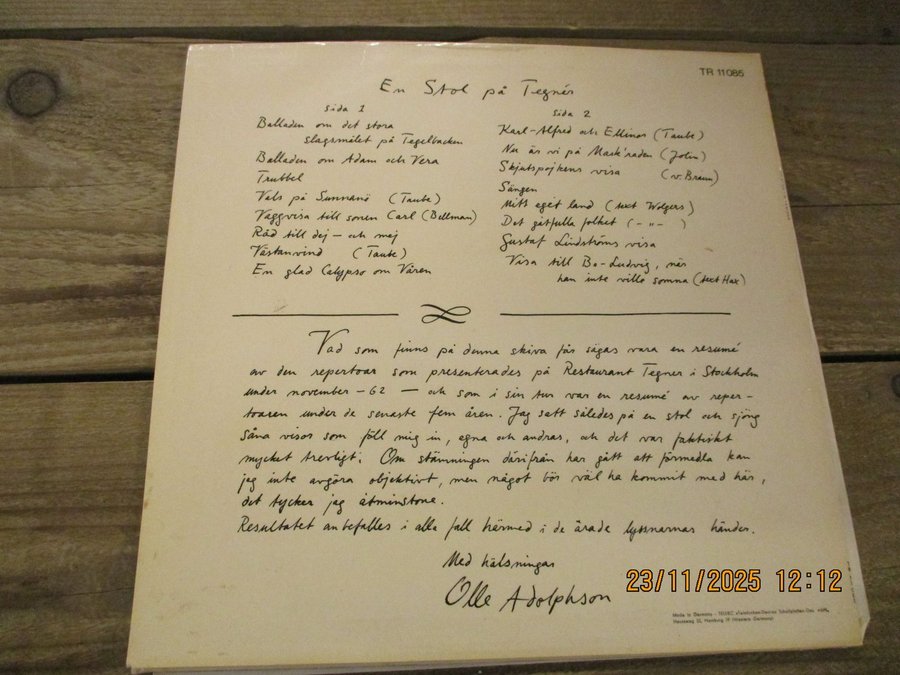 TR 11085
En Stol på Tegnér
Sida 1
Balladen om det stora
slagsmålet på Tegelbacken
Balladen om Adam och Vera
Trubbel
Vals på Sunnanö (Taube)
Vaggvisa till sonen Carl (Bellman)
Råd till dej – och mej
Västanvind (Taube)
En glad Calypso om Våren
Sida 2
Karl-Alfred och Ellinor (Taube)
Nu är vi på Mask'raden (Jolin)
Skjutspojkens visa (v. Braun)
Sången
Mitt eget land (text Wolgers)
Det gåtfulla folket (– " – )
Gustaf Lindströms visa
Visa till Bo-Ludvig, när
han inte ville somna (text Hax)
Vad som finns på denna skiva får sägas vara en resumé
av den repertoar som presenterades på Restaurant Tegnér i Stockholm
under november –62 — och som i sin tur var en resumé av reper-
toaren under de senaste fem åren. Jag satt således på en stol och sjöng
såna visor som föll mig in, egna och andras, och det var faktiskt
mycket trevligt. Om stämningen därifrån har gått att förmedla kan
jag inte avgöra objektivt, men något bör väl ha kommit med här,
det tycker jag åtminstone.
Resultatet anbefalles i alla fall härmed i de ärade lyssnarnas händer.
Med hälsningar
Olle Adolphson
23/11/2025 12:12
Made in Germany - TELDEC »Telefunken-Decca« Schallplatten-Ges. mbH,
Heussweg 25, Hamburg 19 (Western Germany)